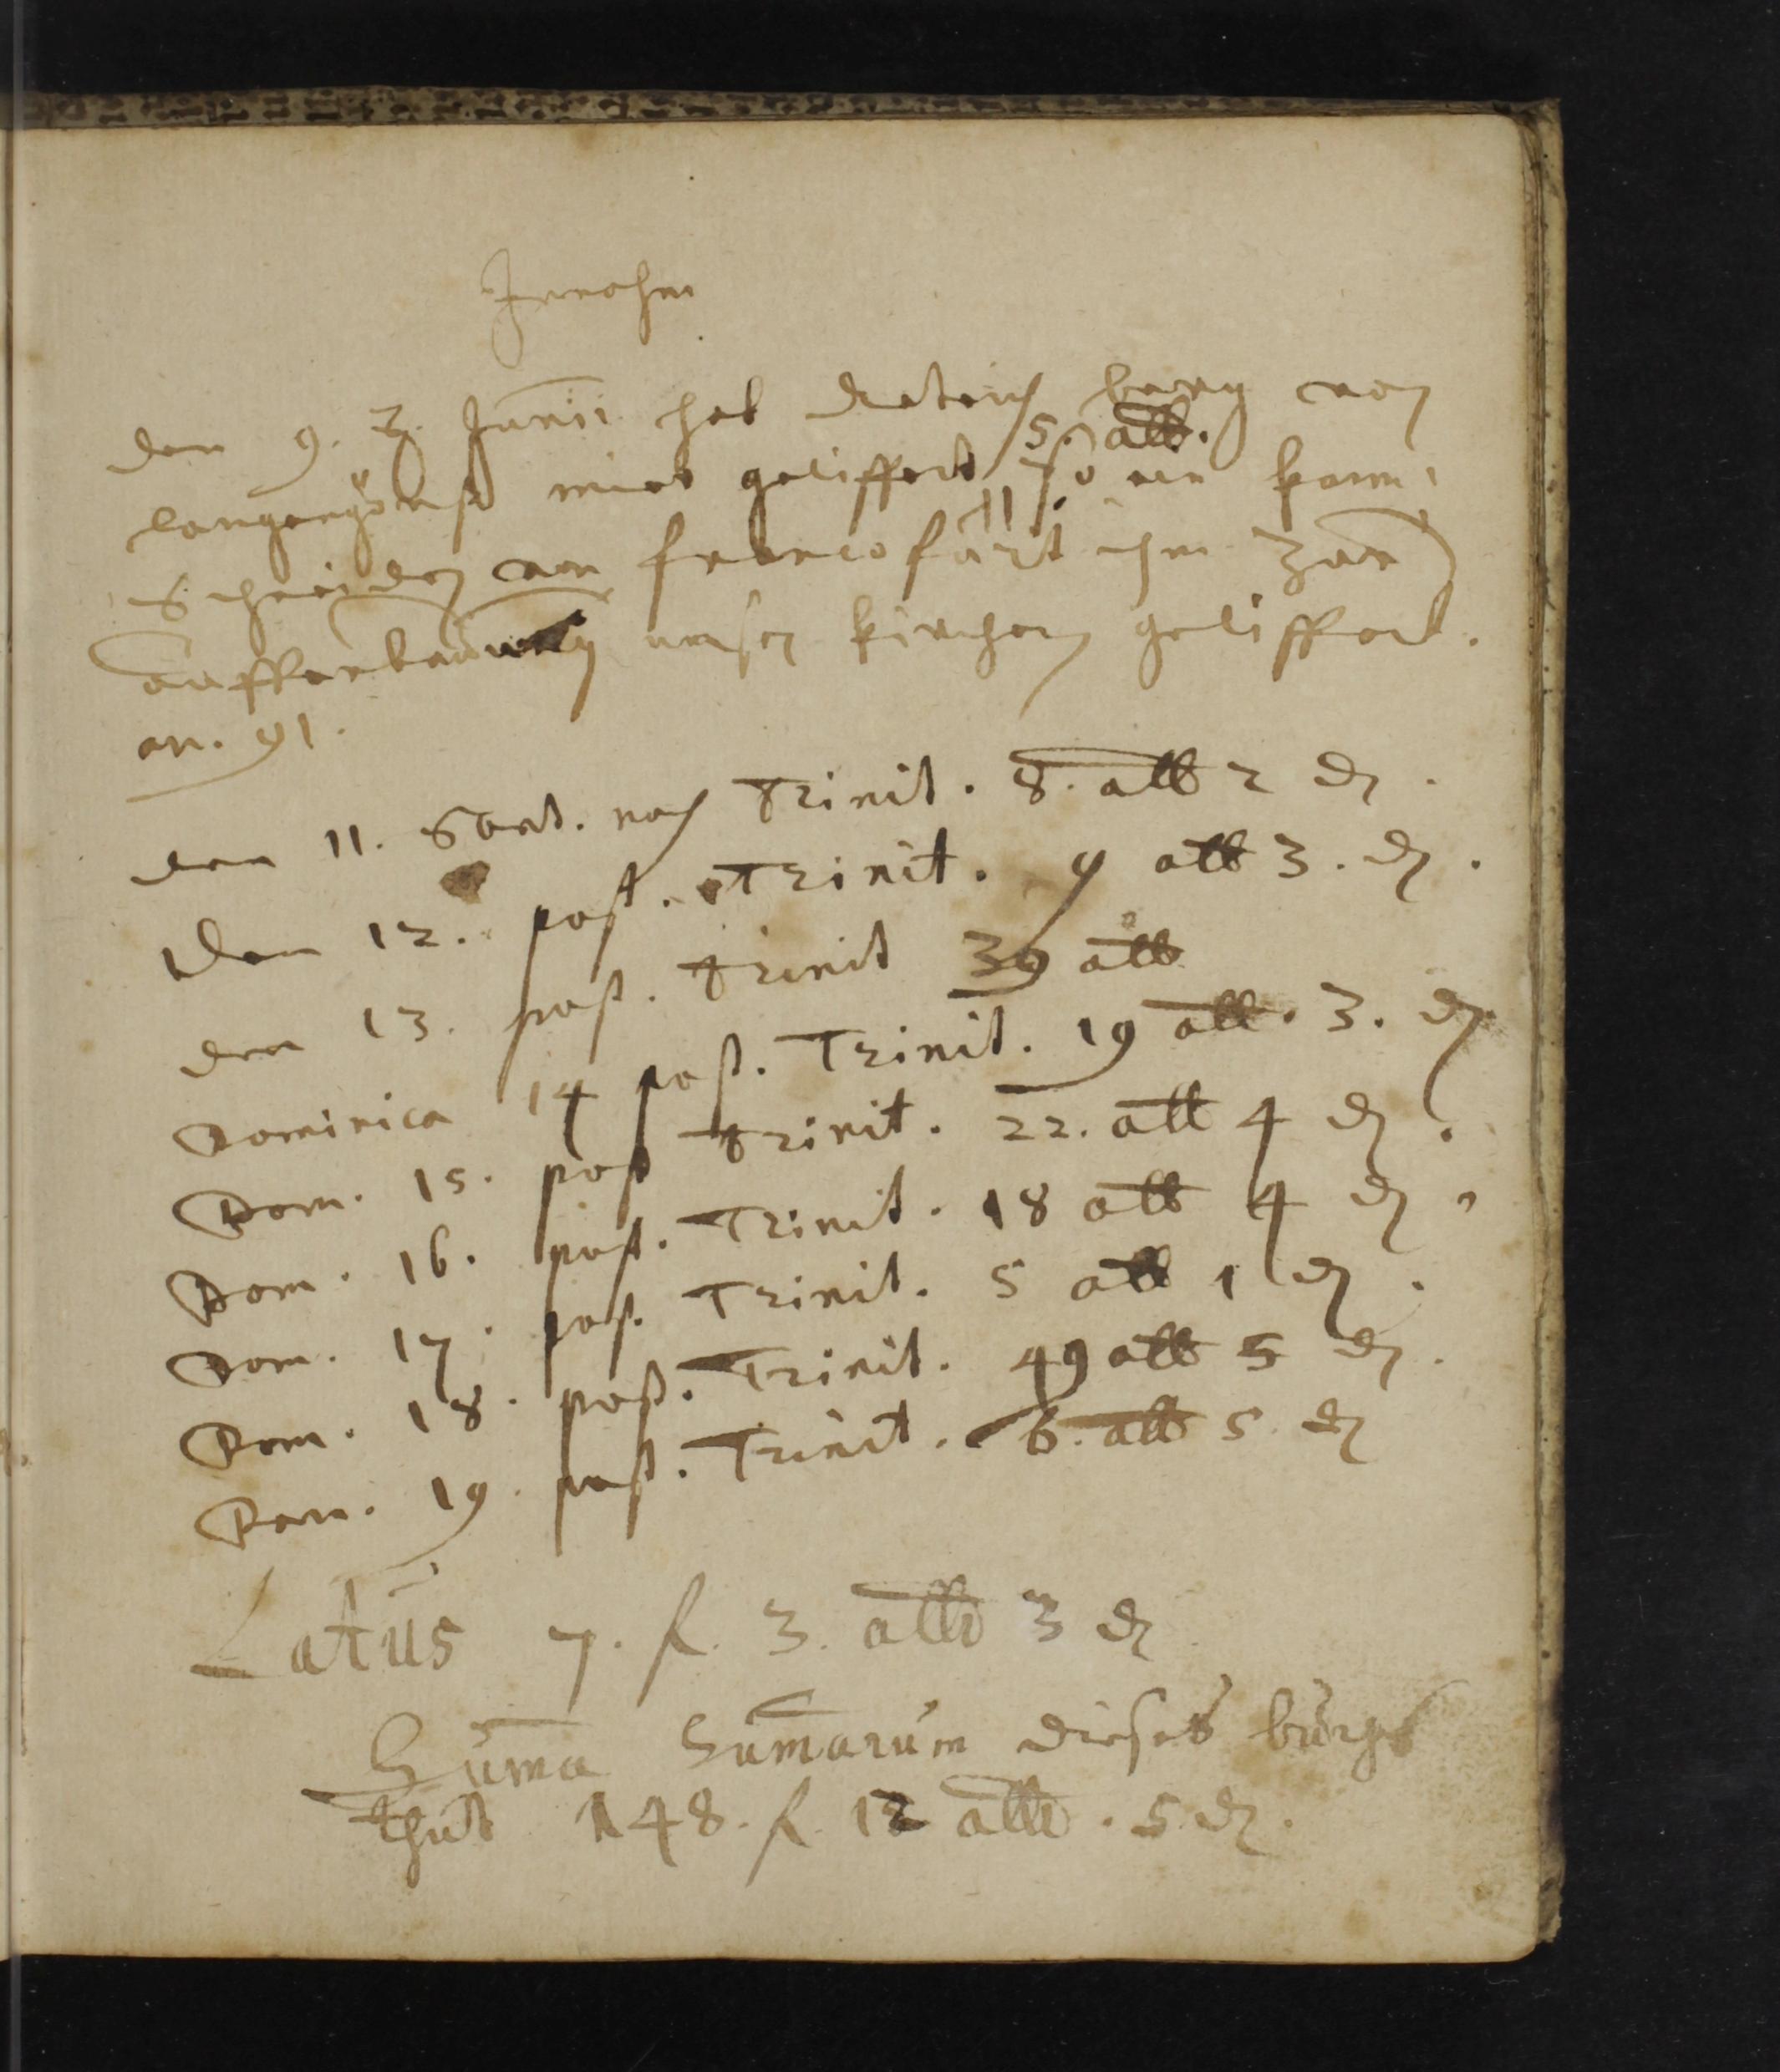 Innahm
den 9. Junii hat berg von
5. alb.
langgönß mir geliffert so ein kam¡
Schneider von francofurt ihm zur
aufferbauung unser kirchen geliffert.
an. 91.
den 11. Sont. nach Trinit. 8. alb 2 d.
Den 12. post. Trinit. 9 alb 3. d.
den 13. post. Trinit 39 alb
Dominica 14 post. Trinit. 19 alb. 3. d.
Dom. 15. post Trinit. 22. alb 4 d.
Dom. 16. post. Trinit. 18 alb 4 d.
Dom. 17. post. Trinit. 5 alb 1 d.
Dom. 18. post. Trinit. 49 alb 5 d.
Dom. 19. post. Trinit. 6. alb 5. d
Latus 7. f. 3. alb 3 d
Suma Sumarum dieses buchs
thut 148. f. 12 alb. 5. d.